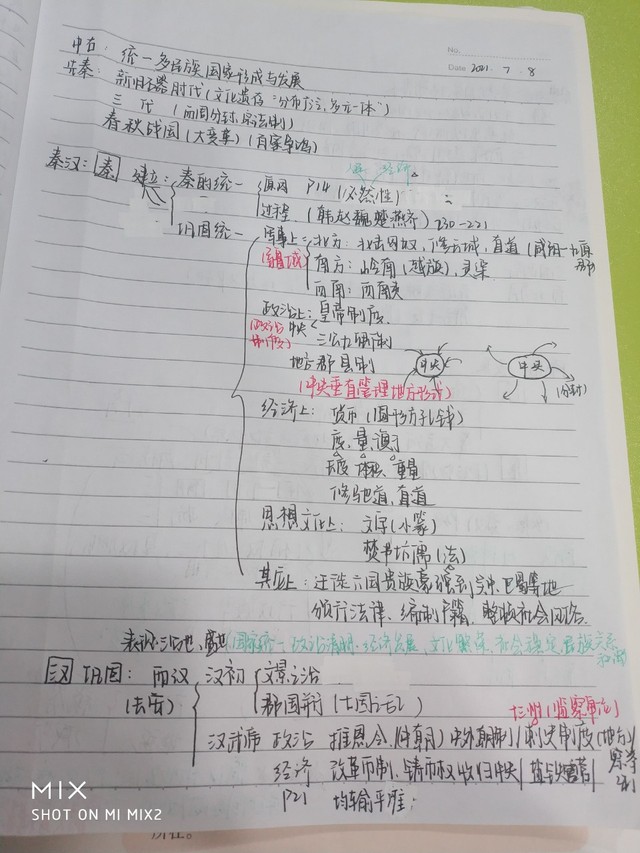 No.
Date 2021. 7. 8
中古: 统一多民族国家形成与发展
先秦: 新旧石器时代(文化遗存 "分布广泛,多元一体")
三代 (西周分封,宗法制)
春秋战国 (大变革) (百家争鸣)
秦汉: 秦 建立: 秦的统一 原因 P14 (必然性)
过程 (韩赵魏楚燕齐) 230-221
巩固统一 军事上: 北方: 北击匈奴, 修长城, 直道 (咸阳—九原郡)
南方: 岭南 (越族), 灵渠
西南: 西南夷
政治上: 皇帝制度
中央 三公九卿制
地方郡县制
中央 中央 (分封)
(中央垂直管理地方形式)
经济上: 货币 (圆形方孔钱)
度.量.衡
长度 体积 重量
修驰道, 直道
思想文化上: 文字 (小篆)
焚书坑儒 (法)
其它上: 迁徙六国贵族豪强到关中.巴蜀等地
颁行法律、编制户籍、整顿社会风俗
表现: 治世, 盛世 (国家统一、政治清明、经济发展、文化繁荣、社会稳定 民族关系和谐
汉 巩固: 西汉 汉初 文景之治
(长安) 郡国并行 (七国之乱)
十三州 (监察单位)
汉武帝 政治 推恩令 中外朝制 刺史制度 (地方)
察举制
经济 改革币制、铸币权收归中央 盐铁官营
P21 均输平准;
MIX
SHOT ON MI MIX2